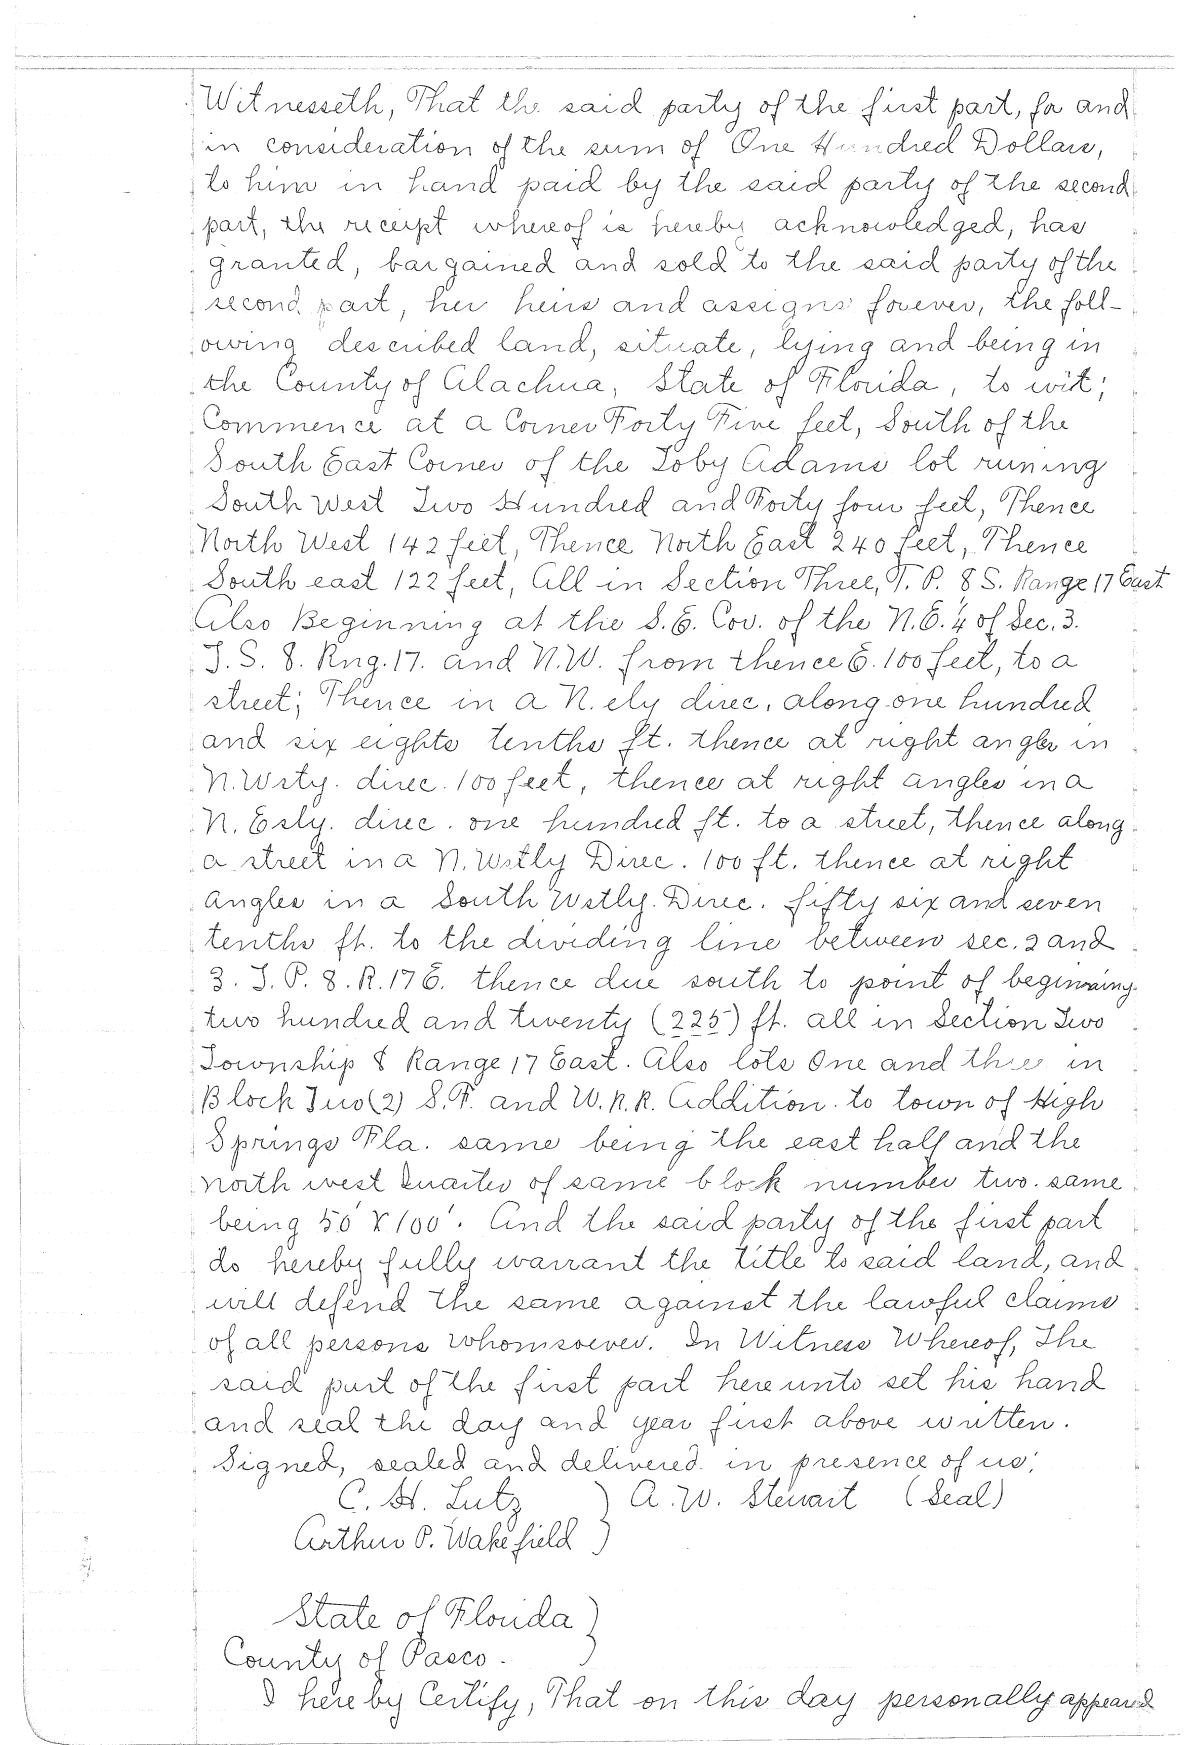 Witnesseth, That the said party of the first part, for and
in consideration of the sum of One Hundred Dollars,
to him in hand paid by the said party of the second
part, the receipt whereof is hereby acknowledged, has
granted, bargained and sold to the said party of the
second part, her heirs and assigns forever, the foll-
owing described land, situate, lying and being in
the County of Alachua, State of Florida, to wit;
Commence at a Corner Forty Five feet, South of the
South East Corner of the Toby Adams lot runing
South West Two Hundred and Forty four feet, Thence
North West 142 feet, Thence North East 240 feet, Thence
South east 122 feet, All in Section Three, T. P. 8 S. Range 17 East
Also Beginning at the S.E. Cov. of the N.E. 1/4 of Sec. 3.
T. S. 8. Rng. 17. and N.W. from thence E. 100 feet, to a
street; Thence in a N. ely direc, along one hundred
and six eights tenths ft. thence at right angles in
N.Wsty. direc. 100 feet, thence at right angles in a
N. Esly. direc. one hundred ft. to a street, thence along
a street in a N. Wstly Direc. 100 ft. thence at right
angles in a South Wstly. Direc. fifty six and seven
tenths ft. to the dividing line between sec. 2 and
3. T. P. 8. R. 17 E. thence due south to point of beginning
two hundred and twenty (225) ft. all in Section Two
Township 8 Range 17 East. Also lots One and three in
Block Two (2) S. F. and W. R. R. Addition to town of High
Springs Fla. same being the east half and the
north west Quarter of same block number two. same
being 50' X 100'. And the said party of the first part
do hereby fully warrant the title to said land, and
will defend the same against the lawful claims
of all persons whomsoever. In Witness Whereof, The
said part of the first part here unto set his hand
and seal the day and year first above written.
Signed, sealed and delivered in presence of us:
C. H. Lutz ) A. W. Stewart (Seal)
Arthur P. Wakefield )
State of Florida )
County of Pasco. )
I hereby Certify, That on this day personally appeared